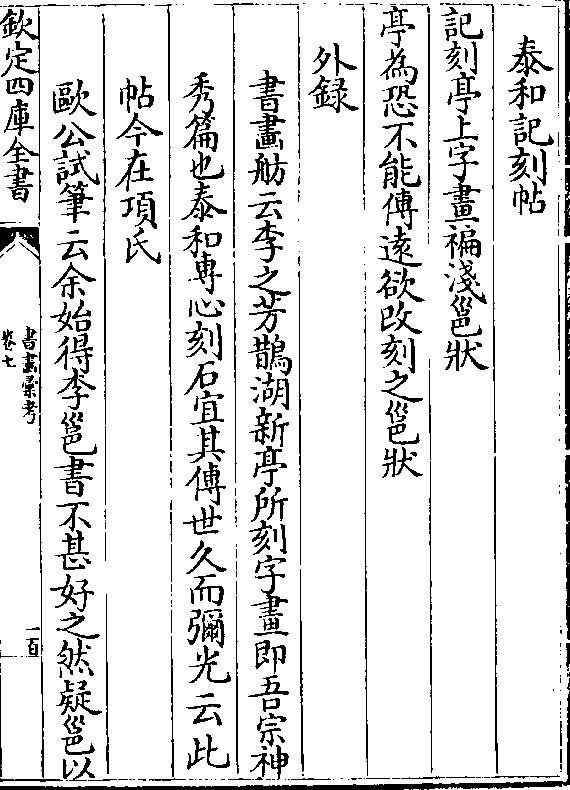 泰和記刻帖
記刻亭上字畫褊淺邕狀
亭為恐不能傳遠欲改刻之邕狀
外録
書畫舫云李之芳鵲湖新亭所刻字畫即吾宗神
秀篇也泰和專心刻石宜其傳世久而彌光云此
帖今在項氏
歐公試筆云余始得李邕書不甚好之然疑邕以
欽定四庫全書
書畫彙考
卷七
一百